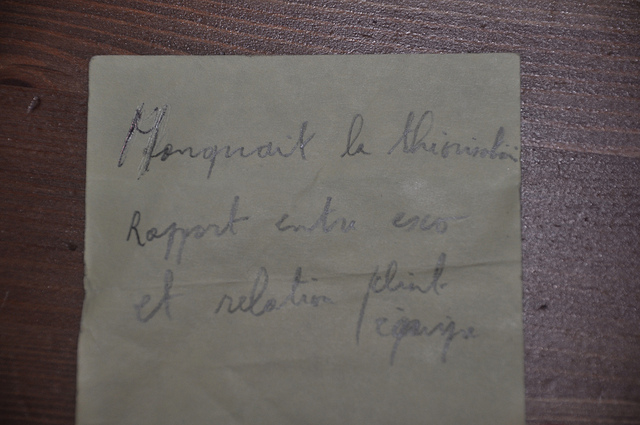 Manquait la théorisation
Rapport entre exos
et relation client
équipe